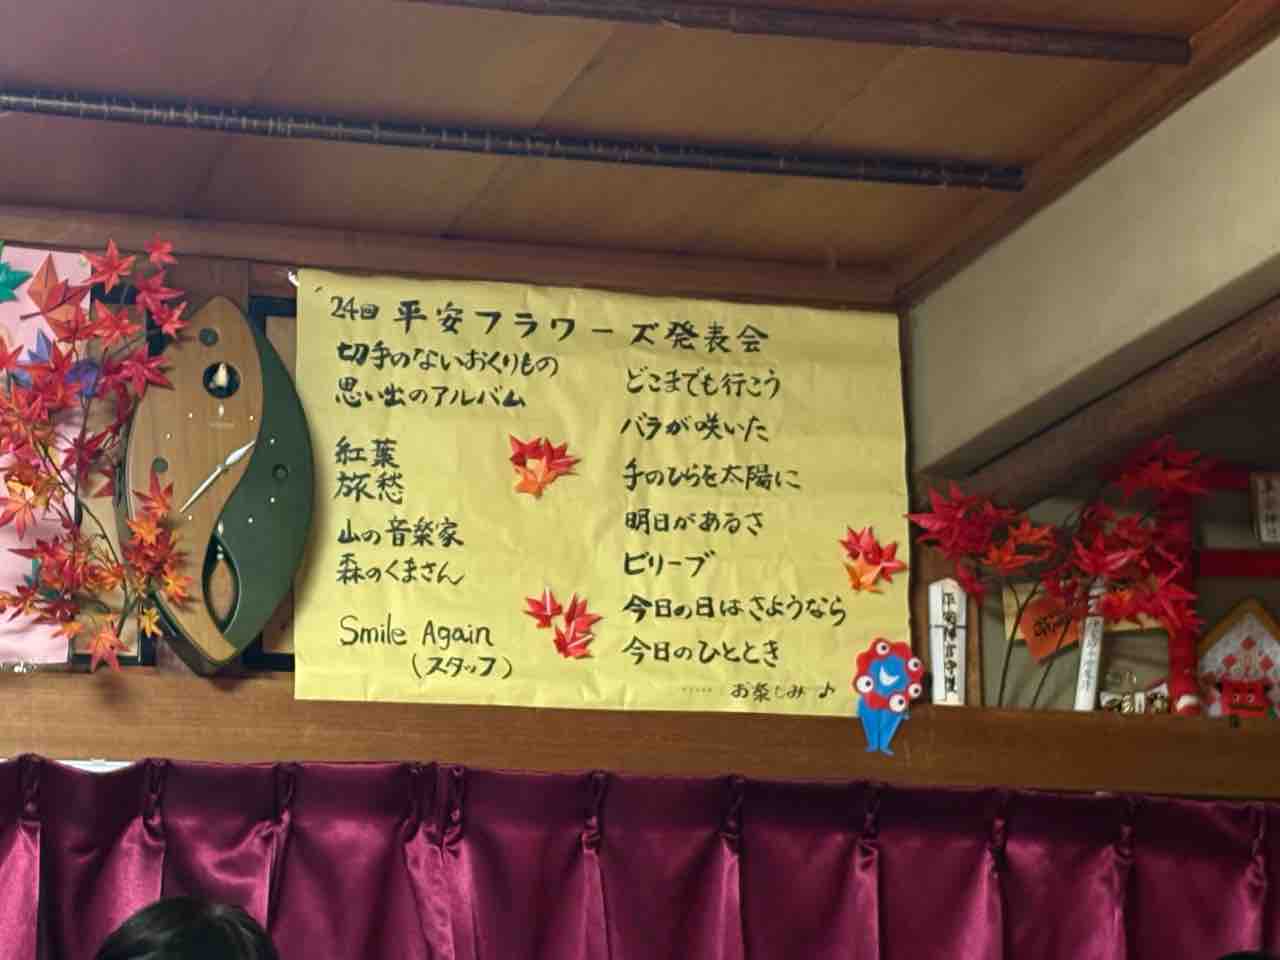 24回 平安フラワーズ発表会
切手のないおくりもの
思い出のアルバム
紅葉
旅愁
山の音楽家
森のくまさん
Smile Again
(スタッフ)
どこまでも行こう
バラが咲いた
手のひらを太陽に
明日があるさ
ビリーブ
今日の日はさようなら
今日のひととき
‥‥‥ お楽しみ♪